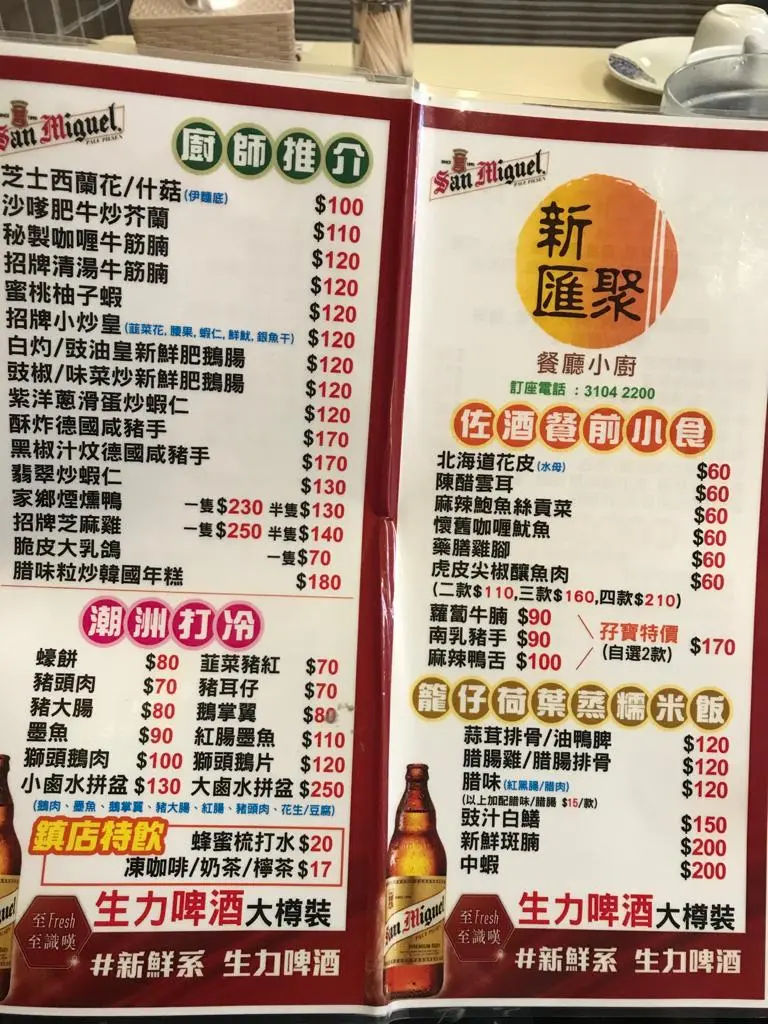 San Miguel
PALE PILSEN
廚師推介
芝士西蘭花/什菇(伊麵底) $100
沙嗲肥牛炒芥蘭 $110
秘製咖喱牛筋腩 $120
招牌清湯牛筋腩 $120
蜜桃柚子蝦 $120
招牌小炒皇(韮菜花, 腰果, 蝦仁, 鮮魷, 銀魚干) $120
白灼/豉油皇新鮮肥鵝腸 $120
豉椒/味菜炒新鮮肥鵝腸 $120
紫洋蔥滑蛋炒蝦仁 $120
酥炸德國咸豬手 $170
黑椒汁炆德國咸豬手 $170
翡翠炒蝦仁 $130
家鄉煙燻鴨 一隻$230 半隻$130
招牌芝麻雞 一隻$250 半隻$140
脆皮大乳鴿 一隻$70
腊味粒炒韓國年糕 $180
潮洲打冷
蠔餅 $80 韮菜豬紅 $70
豬頭肉 $70 豬耳仔 $70
豬大腸 $80 鵝掌翼 $80
墨魚 $90 紅腸墨魚 $110
獅頭鵝肉 $100 獅頭鵝片 $120
小鹵水拼盆 $130 大鹵水拼盆 $250
(鵝肉、墨魚、鵝掌翼、豬大腸、紅腸、豬頭肉、花生/豆腐)
鎮店特飲
蜂蜜梳打水 $20
凍咖啡/奶茶/檸茶 $17
至Fresh
至識嘆
生力啤酒大樽裝
#新鮮系 生力啤酒
San Miguel
PALE PILSEN
新
匯聚
餐廳小廚
訂座電話 : 3104 2200
佐酒餐前小食
北海道花皮(水母) $60
陳醋雲耳 $60
麻辣鮑魚絲貢菜 $60
懷舊咖喱魷魚 $60
藥膳雞腳 $60
虎皮尖椒釀魚肉 $60
(二款$110,三款$160,四款$210)
蘿蔔牛腩 $90
南乳豬手 $90
麻辣鴨舌 $100
孖寶特價
(自選2款)
$170
龍仔荷葉蒸糯米飯
蒜茸排骨/油鴨髀 $120
腊腸雞/腊腸排骨 $120
腊味(紅黑腸/腊肉) $120
(以上加配腊味/腊腸 $15/款)
豉汁白鱔 $150
新鮮斑腩 $200
中蝦 $200
San Miguel
至Fresh
至識嘆
生力啤酒大樽裝
#新鮮系 生力啤酒